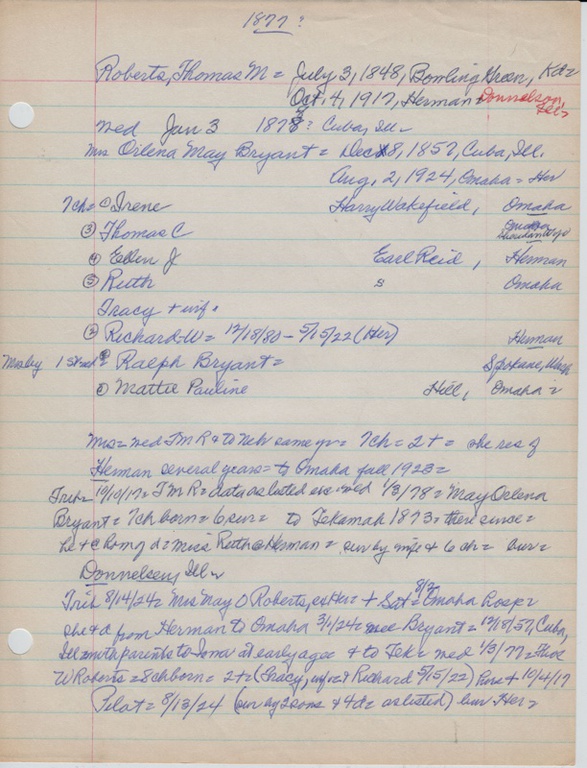 1877?
Roberts, Thomas M = July 3, 1848, Bowling Green,
Oct. 4, 1917, Herman Donnelson, Ill
Med Jan 3 1878? Cuba, Ill
Mrs Orlena May Bryant = Dec 8, 1857, Cuba, Ill.
Aug. 2, 1924, Omaha = Her
7ch = ① Irene Harry Wakefield, Omaha
③ Thomas C Omaha Sheridan Wyo
④ Ellen J Earl Reid, Herman
⑤ Ruth s Omaha
Tracy + inf.
② Richard W = 12/18/80 - 5/15/22 (Her) Herman
Mosby 1 = Ralph Bryant = Spokane, Wash
① Mattie Pauline Hill, Omaha =
Mrs = med T M R & to Neb same yr = 7ch = 2 + = she res of
Herman several years = to Omaha fall 1923 =
Trib = 10/10/17 = T M R = data as listed med 1/3/78 = May Orlena
Bryant = 7ch born = 6 sur = to Tekamah 1873 = there since =
he + c hom of d = Miss Ruth @ Herman = sur by wife + 6 ch = bur =
Donnelsey Ill
Trib 8/14/24 = Mrs May O Roberts, + Sat = 8/2 Omaha hosp =
she + d from Herman to Omaha 3/1/24 = nee Bryant = 12/18/57, Cuba,
Ill = with parents to Iowa at early age + to Tek = med 1/3/77 = Thos
W Roberts = 8ch born = 2 + = (Tracy, inf + Richard 5/15/22) + 10/4/17
Pilot = 8/13/24 (sur by 2 sons + 4d = as listed) bur Her =